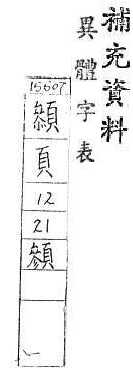 補充資料
異體字表
15607
頁
12
21